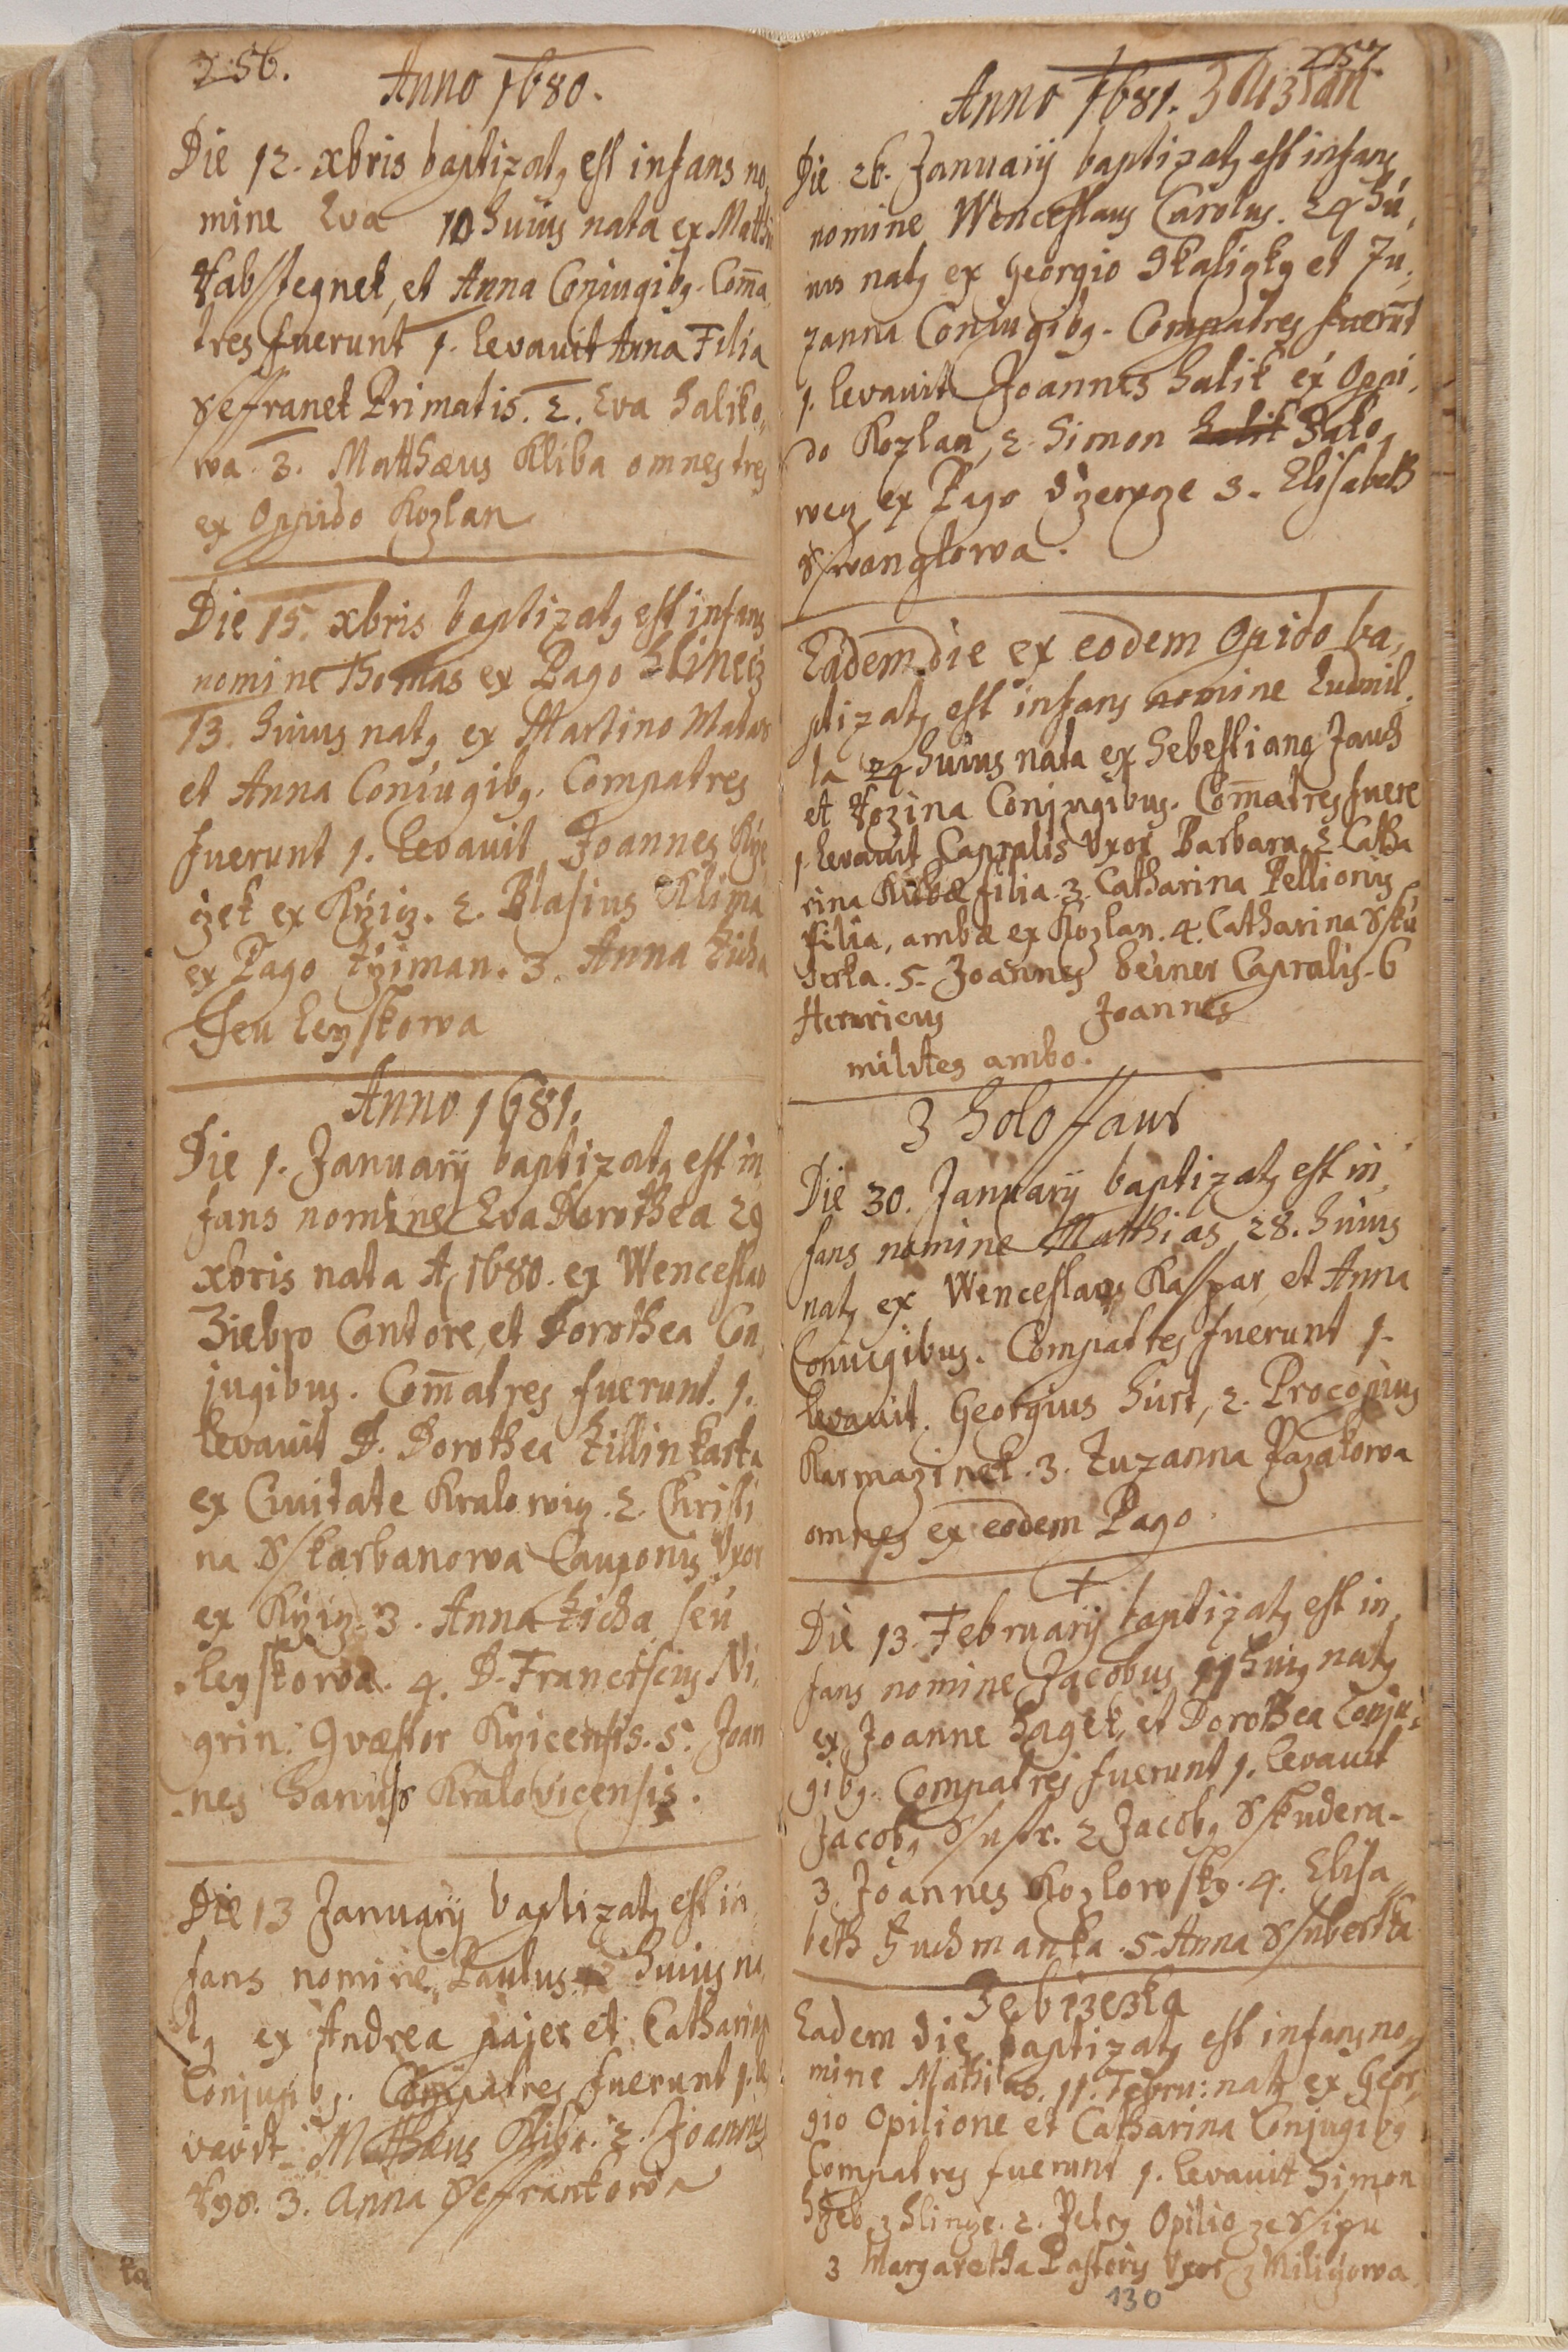 256.
Anno 1680.
Die 12. xbris baptizatq est infans no,
mine Eva 10 huius nata ex Matthia
et Anna Coniugibq. Com̄a,
tres fuerunt 1. levavit Anna Filia
Seffranek Primatis. 2. Eva Haliko,
wa. 3. Matthæus Kliba omnes tres
ex Oppido Kozlan
Die 15. xbris baptizatq est infans
nomine Thomas ex Pago Hlinecz
13. huius natq ex Martino
et Anna Coniugibq. Compatres
fuerunt 1. levauit Joannes
ex Kżicz. 2. Blasius Klima
ex Pago 3. Anna Ticha
seu Leyskowa
Anno 1681.
Die 1. Januarij baptizatq est in,
fans nomine Eva Dorothea 29
xbris nata Aº 1680. ex Wenceslao
Ziebro Cantore, et Dorothea Con,
jugibus. Com̄atres fuerunt. 1.
levauit D. Dorothea Tillinkarka
ex Civitate Kralowicz. 2. Christi
na Sskarbanowa Cauponis Vxor
ex 3. Anna Ticha seu
Leyskowa. 4. D. Franciscus Ni,
grin. Qvæstor Kżicensis. 5. Joan
nes Hanuss Kralovicensis.
Die 13 Januarij baptizatq est in,
fans nomine Paulus 12 huius na
tq ex Andrea pajer et Catharina
Conjugibq. Compatres fuerunt 1. le
vavit Matthæus Kliba. 2. Joannes
3. Anna Seffrankowa
257.
Anno 1681. Z Kozlan
Die 26. Januarij baptizatq est infans
nomine Wenceslaus Carolus. 24 hu,
ius natq ex Georgio Skalizkq et Zu,
zanna Coniugibq. Compatres fuerūt
1. levauit Joannes Halik ex Oppi,
do Kozlan, 2. Simon
ex Pago 3. Elisabeth
Eadem die ex eodem Opido ba,
ptizatq est infans nomine Ludmil,
la 24 huius nata ex Sebestiano Jauch
et Rozina Conjugibus. Com̄atres fuere
1. levavit Capralis Vxor Barbara. 2. Catha
rina filia. 3. Catharina Pellionis
filia, ambæ ex Kozlan. 4. Catharina Ssku
derka. 5. Joannes Beiner Capralis. 6
Henricus Joannes
milites ambo.
Z Holossaus
Die 30. Januarij baptizatq est in,
fans nomine Matthias, 28. huius
natq ex Wenceslao Kasspar et Anna
Coniugibus. Compatres fuerunt 1.
levavit. Georgius Hurt, 2. Procopius
Karmazinek. 3. Zuzanna Pazakowa
omnes ex eodem Pago
Die 13. Februarij baptizatq est in,
fans nomine Jacobus 11 huiq natq
ex Joanne Hagek, et Dorothea Conju,
gibq. Compatres fuerunt 1. levauit
Jacobq 2 Jacobq Sskudera.
3 Joannes Kozlowsky. 4. Elisa,
beth Tuchmanka. 5 Anna Ssubertka
Eadem die baptizatq est infans no,
mine Mathias. 11. Febru: natq ex Geor,
gio Opilione et Catharina Conjugibq
Compatres fuerunt 1. levavit Simon
z Hlincze. 2. Petrq Opilio ze
3 Margaretha Pastoris Vxor z Miliczowa
130